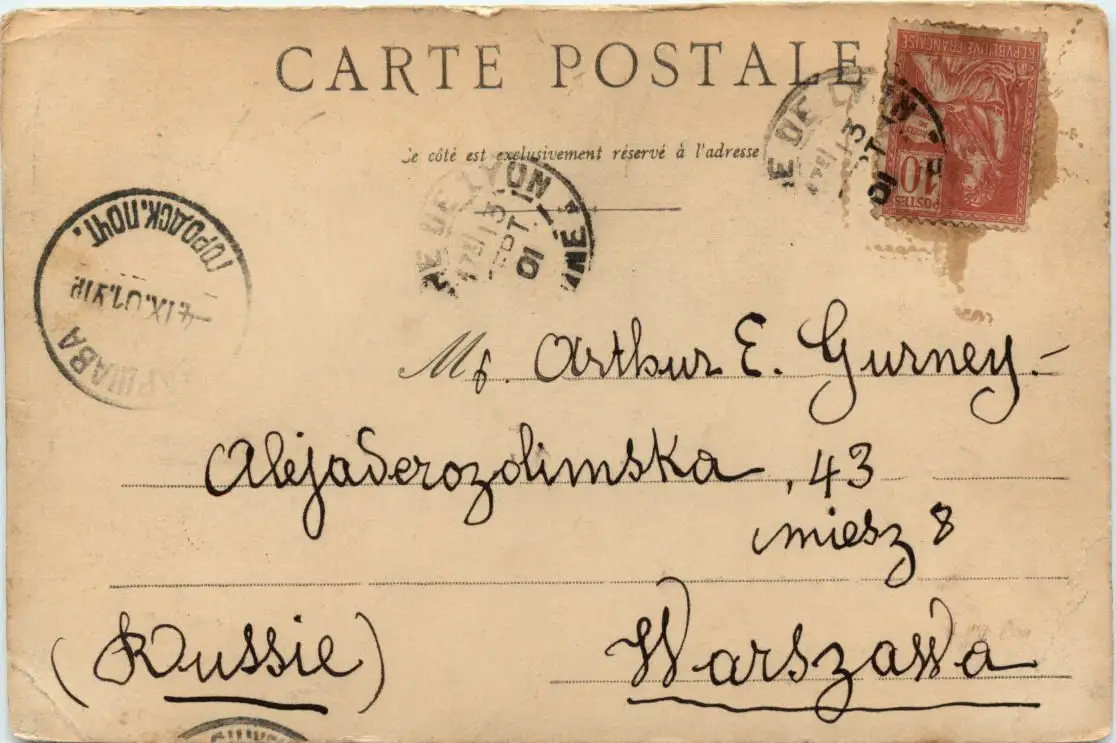 CARTE POSTALE
Ce côté est exclusivement réservé à l'adresse
RÉPUBLIQUE FRANÇAISE
POSTES
10
DE LYON
13
SEPT
01
DE LYON
13
SEPT
01
ГОРОДСК. ПОЧТ.
ВАРШАВА
Mr. Arthur E. Gurney.-
Alejaderozolimska, 43
miesz 8
(Russie)
Warszawa